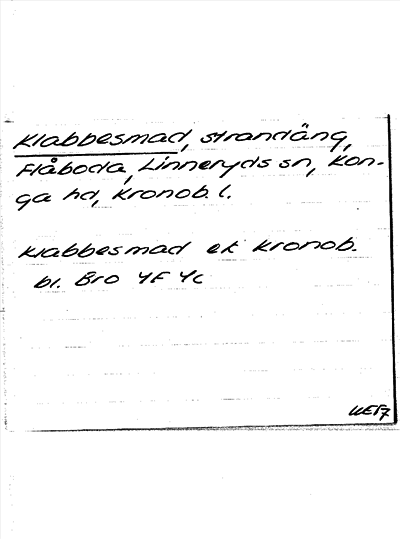 Klabbesmad, strandäng,
Flåboda, Linneryds sn, Kon-
ga hd, Kronob. l.
Klabbesmad ek Kronob.
bl. Bro 4F 4c